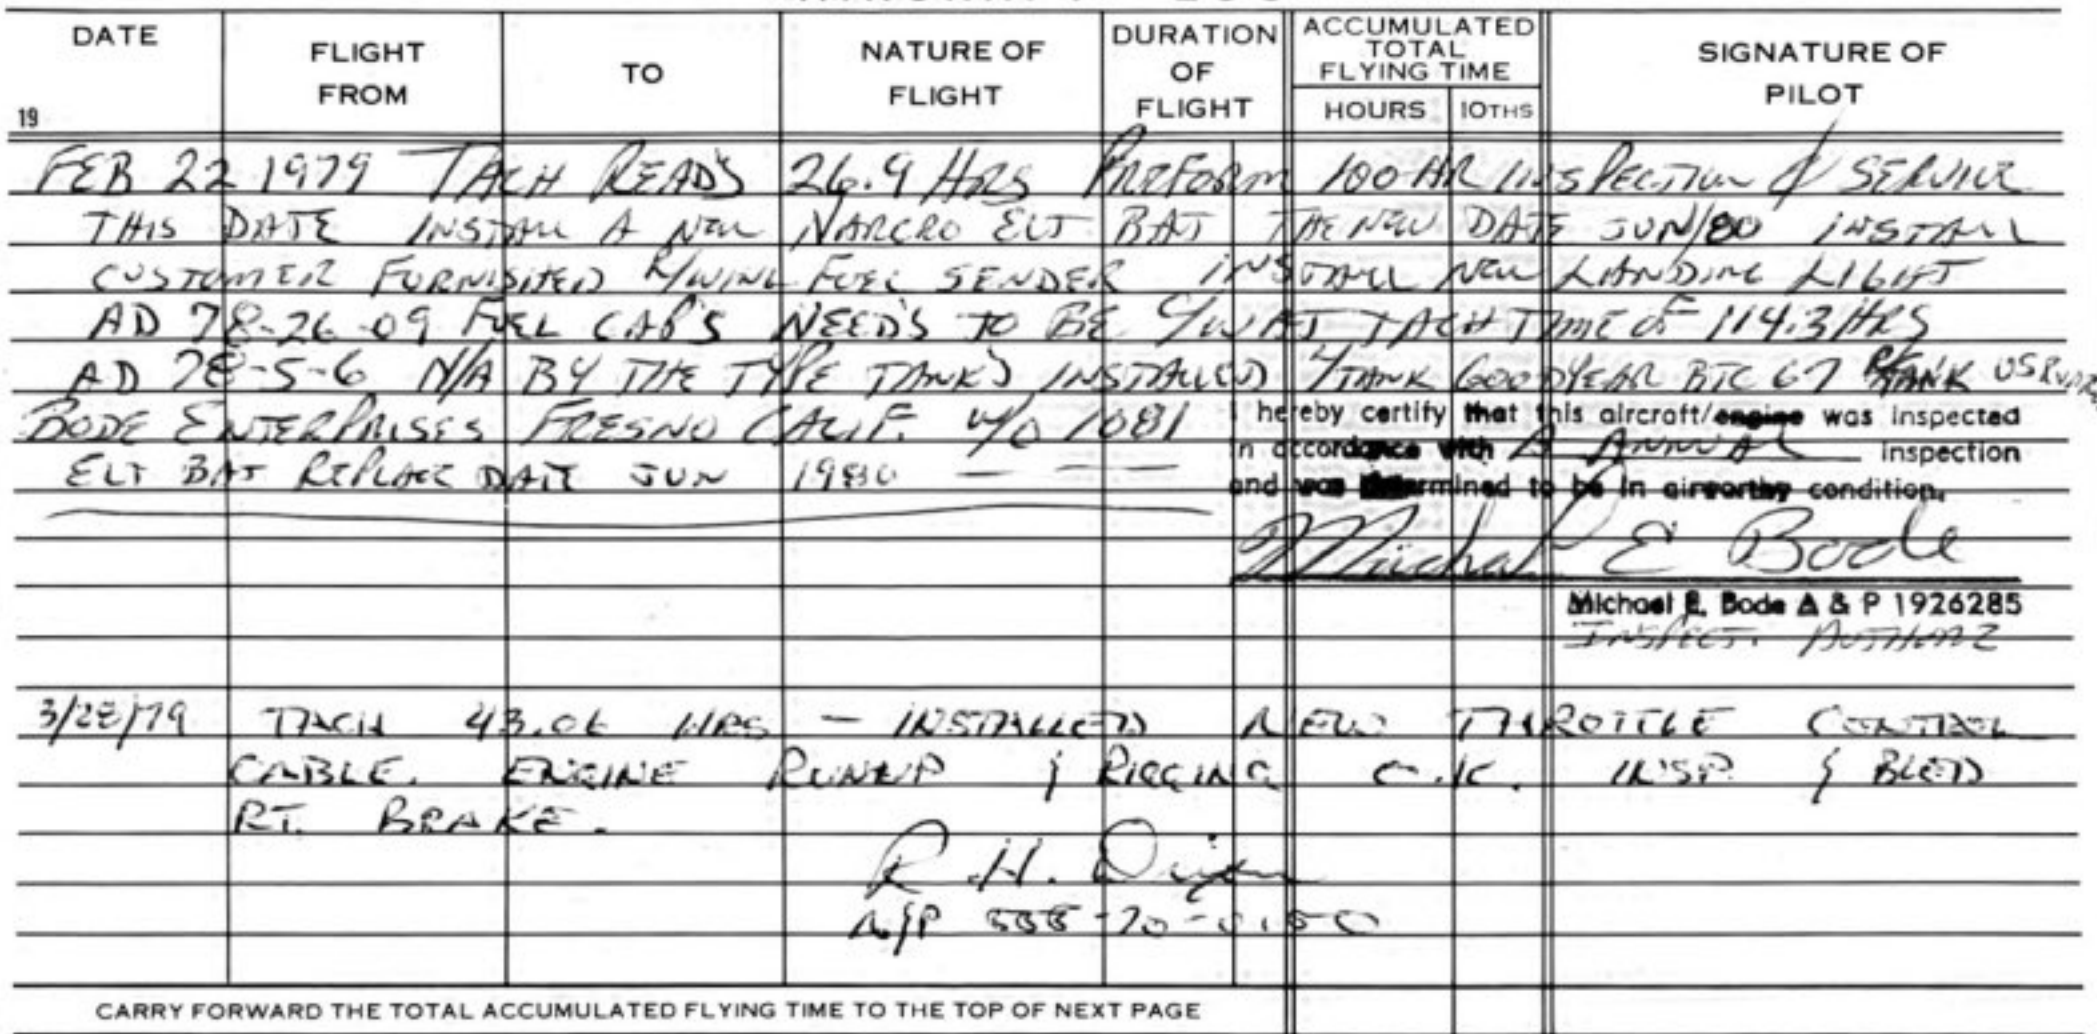 DATE
FLIGHT FROM
TO
NATURE OF FLIGHT
DURATION OF FLIGHT
ACCUMULATED TOTAL FLYING TIME
HOURS 10THS
SIGNATURE OF PILOT
19
FEB 22 1979 TACH READS 26.9 HRS PREFORM 100 HR INSPECTION & SERVICE
THIS DATE INSTALL A NEW NARCRO ELT BAT THE NEW DATE JUN/80 INSTALL
CUSTOMER FURNISHED R/WING FUEL SENDER INSTALL NEW LANDING LIGHT
AD 78-26-09 FUEL CAP'S NEED'S TO BE C/W AT TACH TIME OF 114.3 HRS
AD 78-5-6 N/A BY THE TYPE TANKS INSTALLED L/TANK GOODYEAR BTC 67 R/TANK
BODE ENTERPRISES FRESNO CALIF. W/O 1081
ELT BAT REPLACE DATE JUN 1980 — — —
I hereby certify that this aircraft/engine was inspected
in accordance with A ANNUAL inspection
and was determined to be in airworthy condition.
Michael E Bode
Michael E. Bode A & P 1926285
INSPECT. AUTHORIZ
3/28/79 TACH 43.06 HRS — INSTALLED NEW THROTTLE CONTROL
CABLE. ENGINE RUNUP & RIGGING O.K. INSP & BLED
RT. BRAKE.
R.H.
A&P
CARRY FORWARD THE TOTAL ACCUMULATED FLYING TIME TO THE TOP OF NEXT PAGE